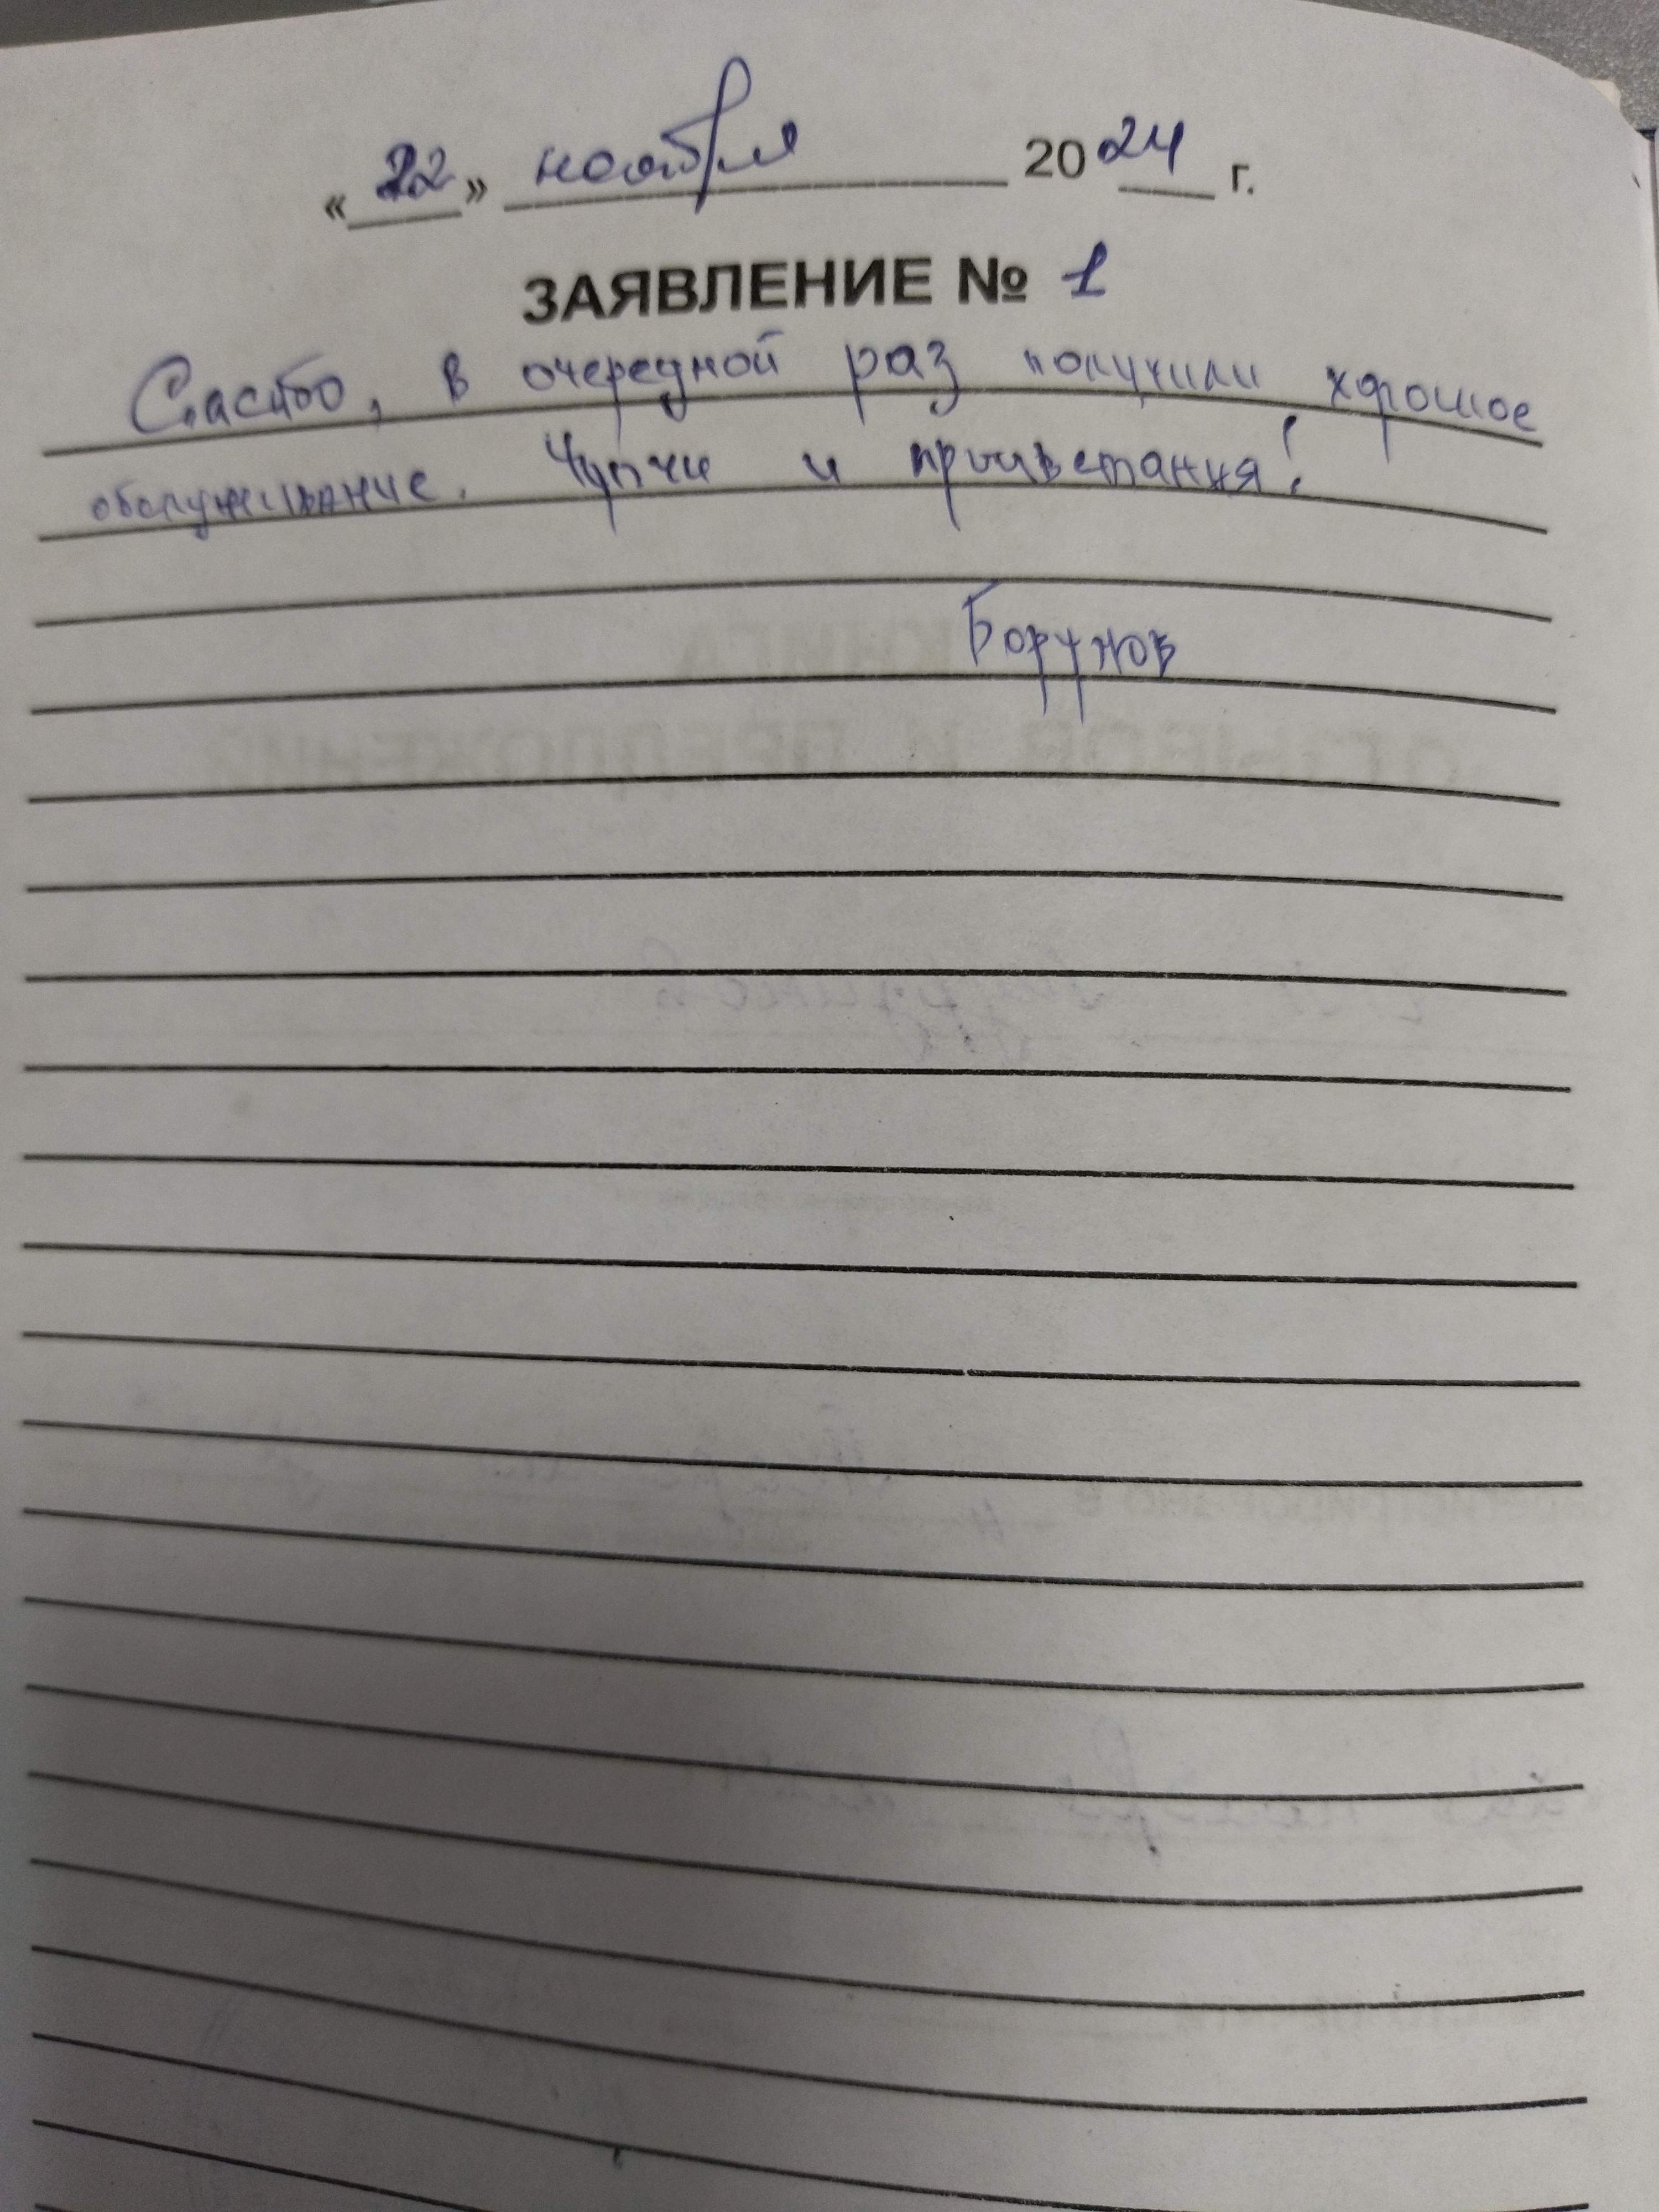 «22» ноября 2024 г.
ЗАЯВЛЕНИЕ № 1
Спасибо, в очередной раз получили хорошее
обслуживание. и процветания!
Борунов
КНИГА
ОТЗЫВОВ И ПРЕДЛОЖЕНИЙ